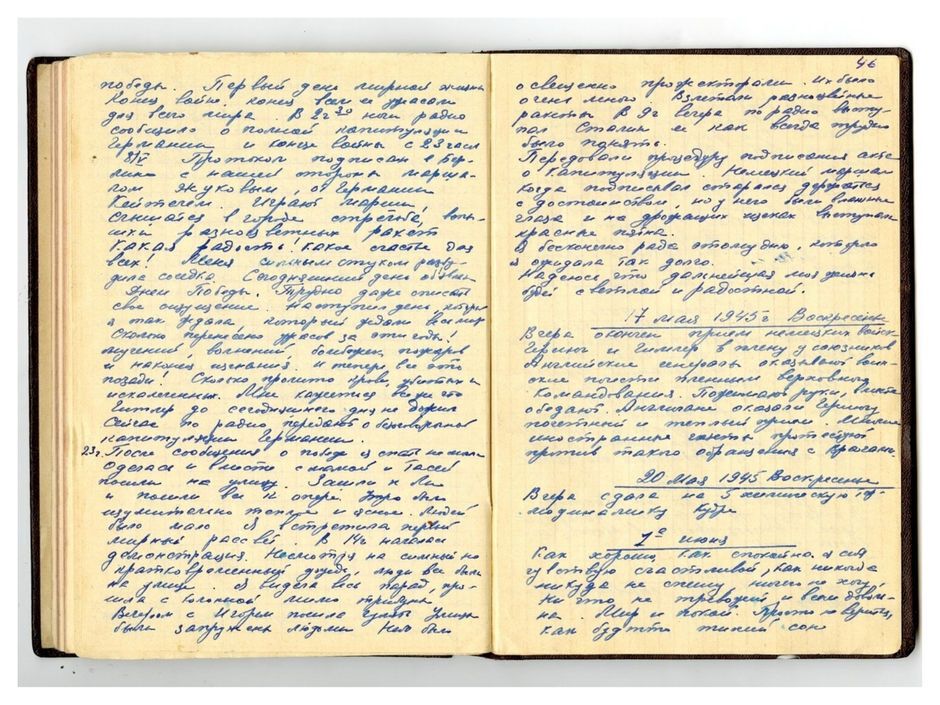 победы. Первый день мирной жизни
Конец войне. Конец всем ужасам
для всего мира. В 2ч 30 ночи радио
сообщило о полной капитуляции
Германии и конце войны с 23 часа
8/V Протокол подписан в Бер-
лине с нашей стороны марша-
лом Жуковым, от Германии
Кейтелем. Играют марши,
слышится в городе стрельба, вспы-
шки разноцветных ракет
Какая радость! Какое счастье для
всех! Меня сильным стуком разбу-
дила соседка. Сегодняшний день объявлен
Днем Победы. Трудно даже описать
свое ощущение. Наступил день, который
я так ждала, который ждал весь мир
Сколько перенесено ужасов за эти годы!
мучений, волнений, бомбежек, пожаров
и наконец изгнания. И теперь все это
позади! Сколько пролито крови, убитых и
искалеченных. Мне кажется что
Гитлер до сегодняшнего дня не дожил
Сейчас по радио передают о безоговорочной
капитуляции Германии.
23ч. После сообщения о победе я спать не могла
Оделась и вместе с мамой и Тасей
пошли на улицу. Зашли к
и пошли все к опере. Утро было
изумительно теплое и ясное. Людей
было мало Я встретила первый
мирный рассвет. В 14ч началась
демонстрация. Несмотря на сильный но
кратковременный дождь, люди все были
на улице. Я видела весь парад, про-
шла с колонной мимо трибуны
Вечером с Игорем пошла гулять Улицы
были запружены людьми Небо было
46
освещено прожекторами. Их было
очень много. Взлетали разноцветные
ракеты В 9ч вечера по радио высту-
пал Сталин и как всегда трудно
было понять.
Передавали процедуру подписания акта
о капитуляции. Немецкий маршал
когда подписывал старался держаться
с достоинством, но у него были влажные
глаза и на дрожащих щеках выступали
красные пятна.
Я бесконечно рада этому дню, которого
я ожидала так долго.
Надеюсь что дальнейшая моя жизнь
будет светлой и радостной.
17 мая 1945г Воскресенье
Вчера окончен прием немецких войск
Геринг и Гиммлер в плену у союзников
Английские генералы оказывают воин-
ские почести пленным верховного
командования. Пожимают руки, вместе
обедают. Англичане оказали Герингу
почетный и теплый прием. Многие
иностранные газеты протестуют
против такого обращения с врагами.
20 Мая 1945 Воскресенье
Вчера сдала на 5 химическую тер-
модинамику
1е июня
Как хорошо, как спокойно. Я себя
чувствую счастливой, как никогда
никуда не спешу ничего не хочу,
Ни что не тревожит и всем доволь-
на. Мир и покой. Просто не верится,
как будто тихий сон